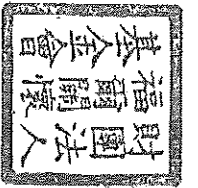 財團法人
福爾關懷
基金會